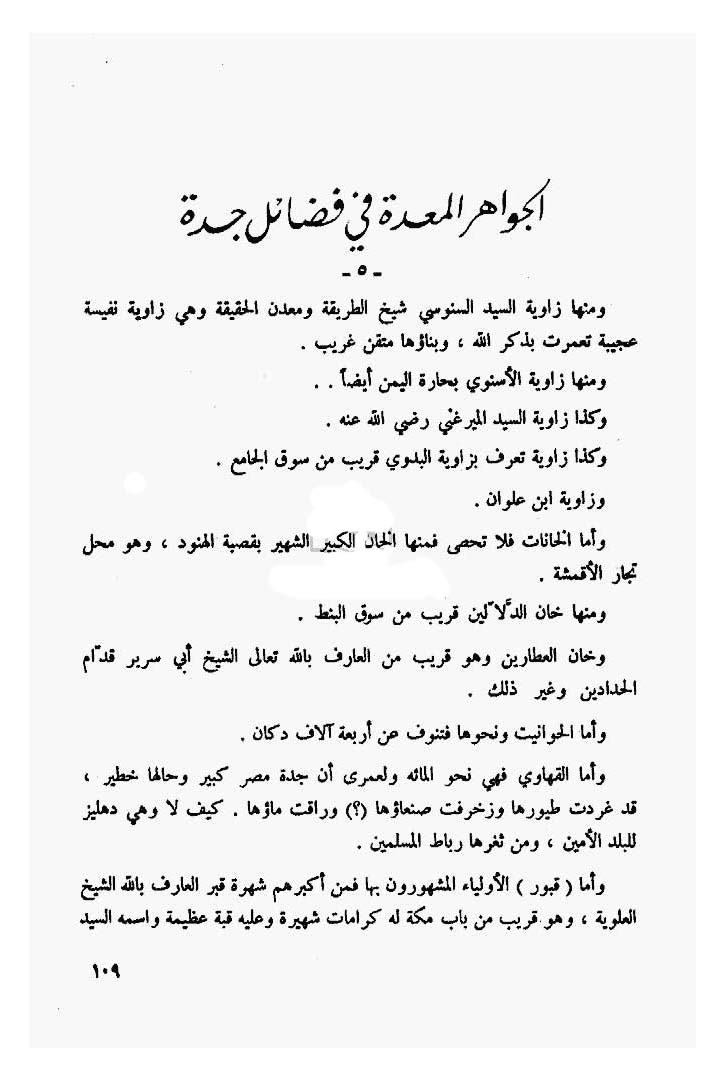 الجواهر المعدة في فضائل جدة
- ٥ -
ومنها زاوية السيد السنوسي شيخ الطريقة ومعدن الحقيقة وهي زاوية نفيسة
عجيبة تعمرت بذكر الله ، وبناؤها متقن غريب .
ومنها زاوية الأسنوي بحارة اليمن أيضاً . .
وكذا زاوية السيد الميرغني رضي الله عنه .
وكذا زاوية تعرف بزاوية البدوي قريب من سوق الجامع .
وزاوية ابن علوان .
وأما الخانات فلا تحصى فمنها الخان الكبير الشهير بقصبة الهنود ، وهو محل
تجار الأقمشة .
ومنها خان الدلَّالين قريب من سوق البنط .
وخان العطارين وهو قريب من العارف بالله تعالى الشيخ أبي سرير قدّام
الحدادين وغير ذلك .
وأما الحوانيت ونحوها فتنوف عن أربعة آلاف دكان .
وأما القهاوي فهي نحو المائه ولعمرى أن جدة مصر كبير وحالها خطير ،
قد غردت طيورها وزخرفت صنعاؤها (؟) وراقت ماؤها . كيف لا وهي دهليز
للبلد الأمين ، ومن ثغرها رباط المسلمين .
وأما ( قبور ) الأولياء المشهورون بها فمن أكبرهم شهرة قبر العارف بالله الشيخ
العلوية ، وهو قريب من باب مكة له كرامات شهيرة وعليه قبة عظيمة واسمه السيد
١٠٩